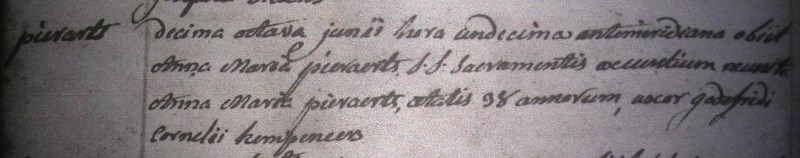 pierarts decima octava junii hora undecima antimeridiana obiit
Anna Maria pieraerts, S.S. Sacramentis munita
Anna Maria pieraerts, ætatis 38 annorum, uxor godefridi
Cornelii hempeneers